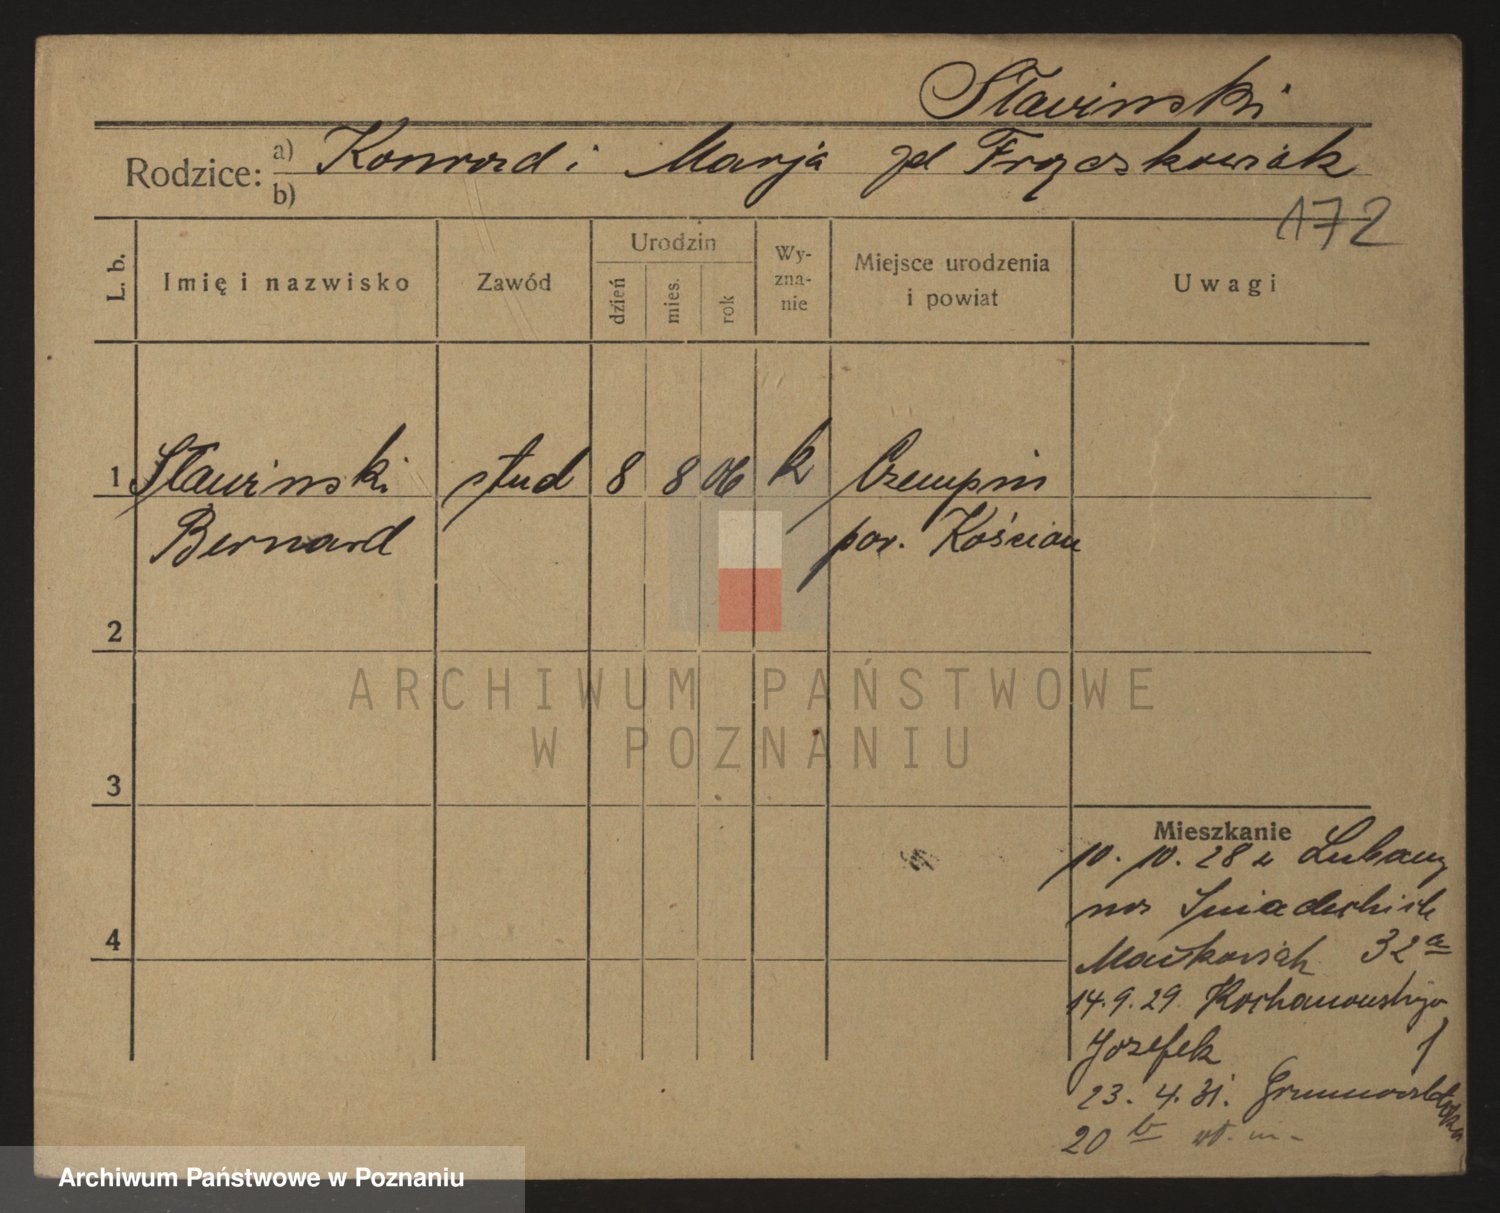 Sławinski
Rodzice: a) Konrad i Marja zd Frąckowiak
b)
172
L. b.
Imię i nazwisko
Zawód
Urodzin
dzień
mies.
rok
Wy-
zna-
nie
Miejsce urodzenia
i powiat
Uwagi
1 Sławinski stud 8 8 06 k Czempin
Bernard pow. Kościan
2
ARCHIWUM PAŃSTWOWE
W POZNANIU
3
Mieszkanie
10. 10. 28 z
na Śniadeckich
32 a
14. 9. 29 Kochanowskiego
Józefek 1
23. 4. 31. Grunwaldzka
20 b
4
Archiwum Państwowe w Poznaniu